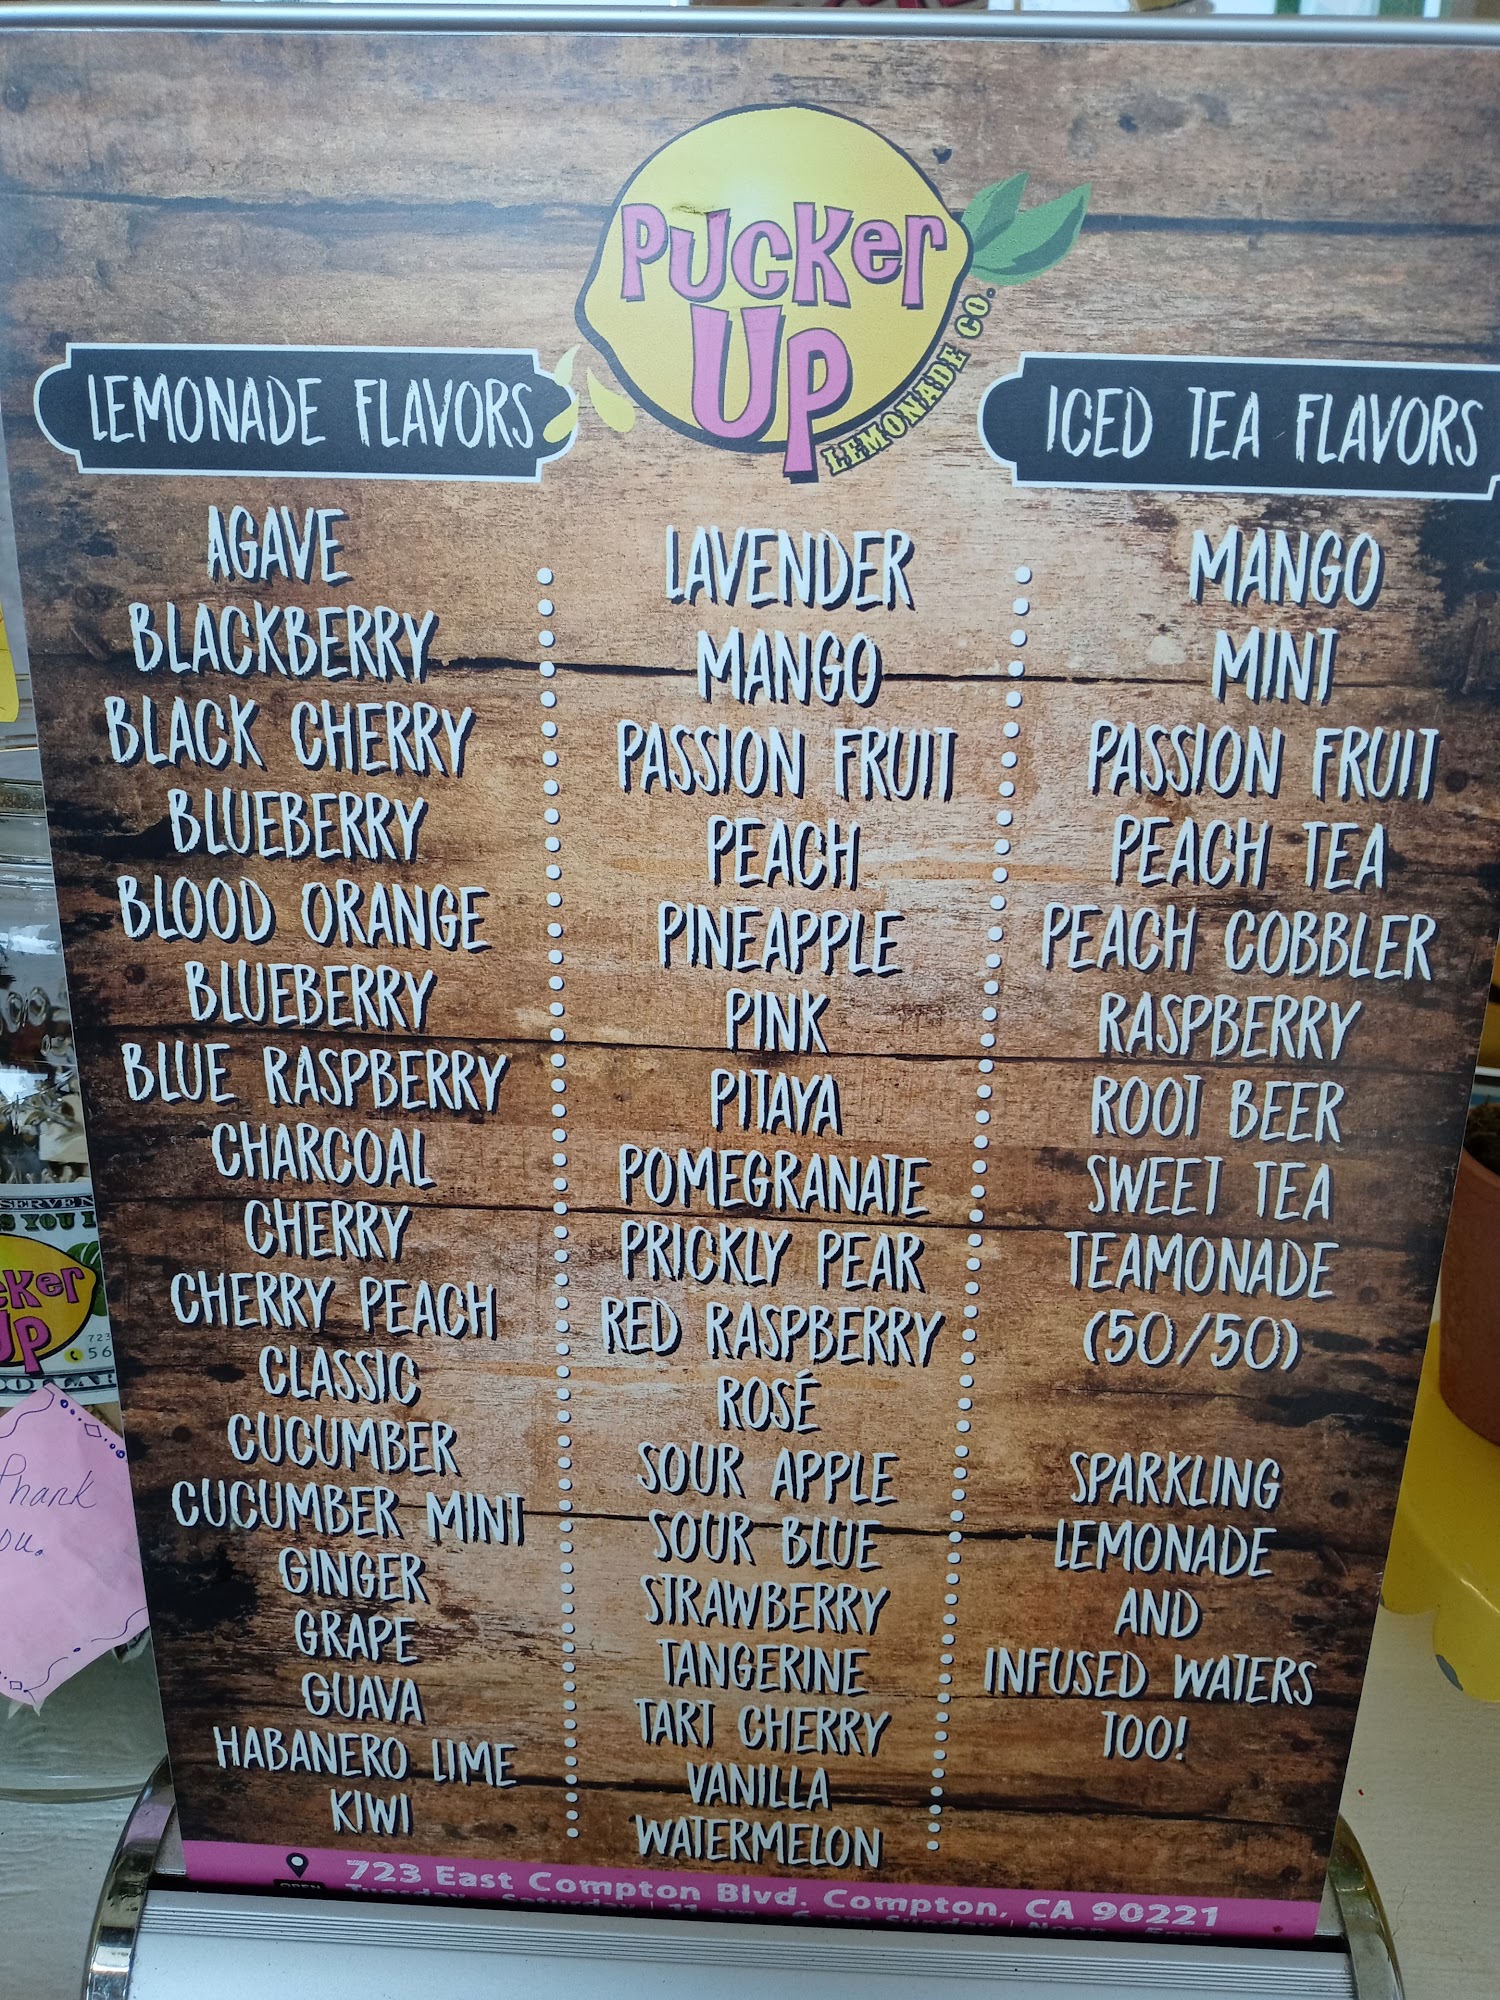 Pucker
Up
LEMONADE CO.
LEMONADE FLAVORS
AGAVE
BLACKBERRY
BLACK CHERRY
BLUEBERRY
BLOOD ORANGE
BLUEBERRY
BLUE RASPBERRY
CHARCOAL
CHERRY
CHERRY PEACH
CLASSIC
CUCUMBER
CUCUMBER MINT
GINGER
GRAPE
GUAVA
HABANERO LIME
KIWI
LAVENDER
MANGO
PASSION FRUIT
PEACH
PINEAPPLE
PINK
PITAYA
POMEGRANATE
PRICKLY PEAR
RED RASPBERRY
ROSÉ
SOUR APPLE
SOUR BLUE
STRAWBERRY
TANGERINE
TART CHERRY
VANILLA
WATERMELON
ICED TEA FLAVORS
MANGO
MINT
PASSION FRUIT
PEACH TEA
PEACH COBBLER
RASPBERRY
ROOT BEER
SWEET TEA
TEAMONADE
(50/50)
SPARKLING
LEMONADE
AND
INFUSED WATERS
TOO!
723 East Compton Blvd. Compton, CA 90221
Thank
ou.